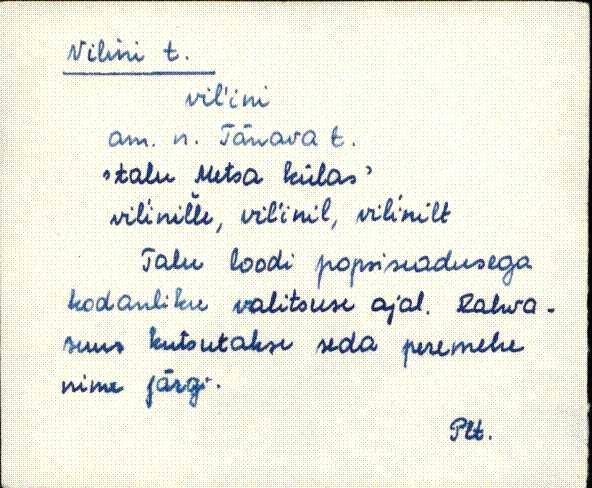 Vilini t.
vil'ini
am. n. Tänava t.
'talu Metsa külas'
vil'inille, vil'inil, vil'inilt
Talu loodi popsiseadusega
kodanliku valitsuse ajal. Rahva-
suus kutsutakse seda peremehe
nime järgi.
Plt.